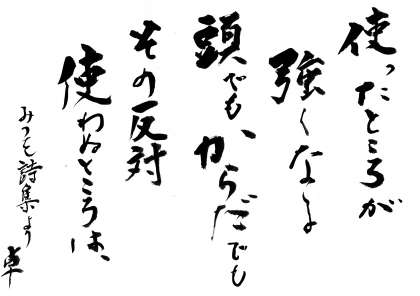 使ったところが
強くなる
頭でも、からだでも
その反対
使わぬところは、
みつを詩集より
卓